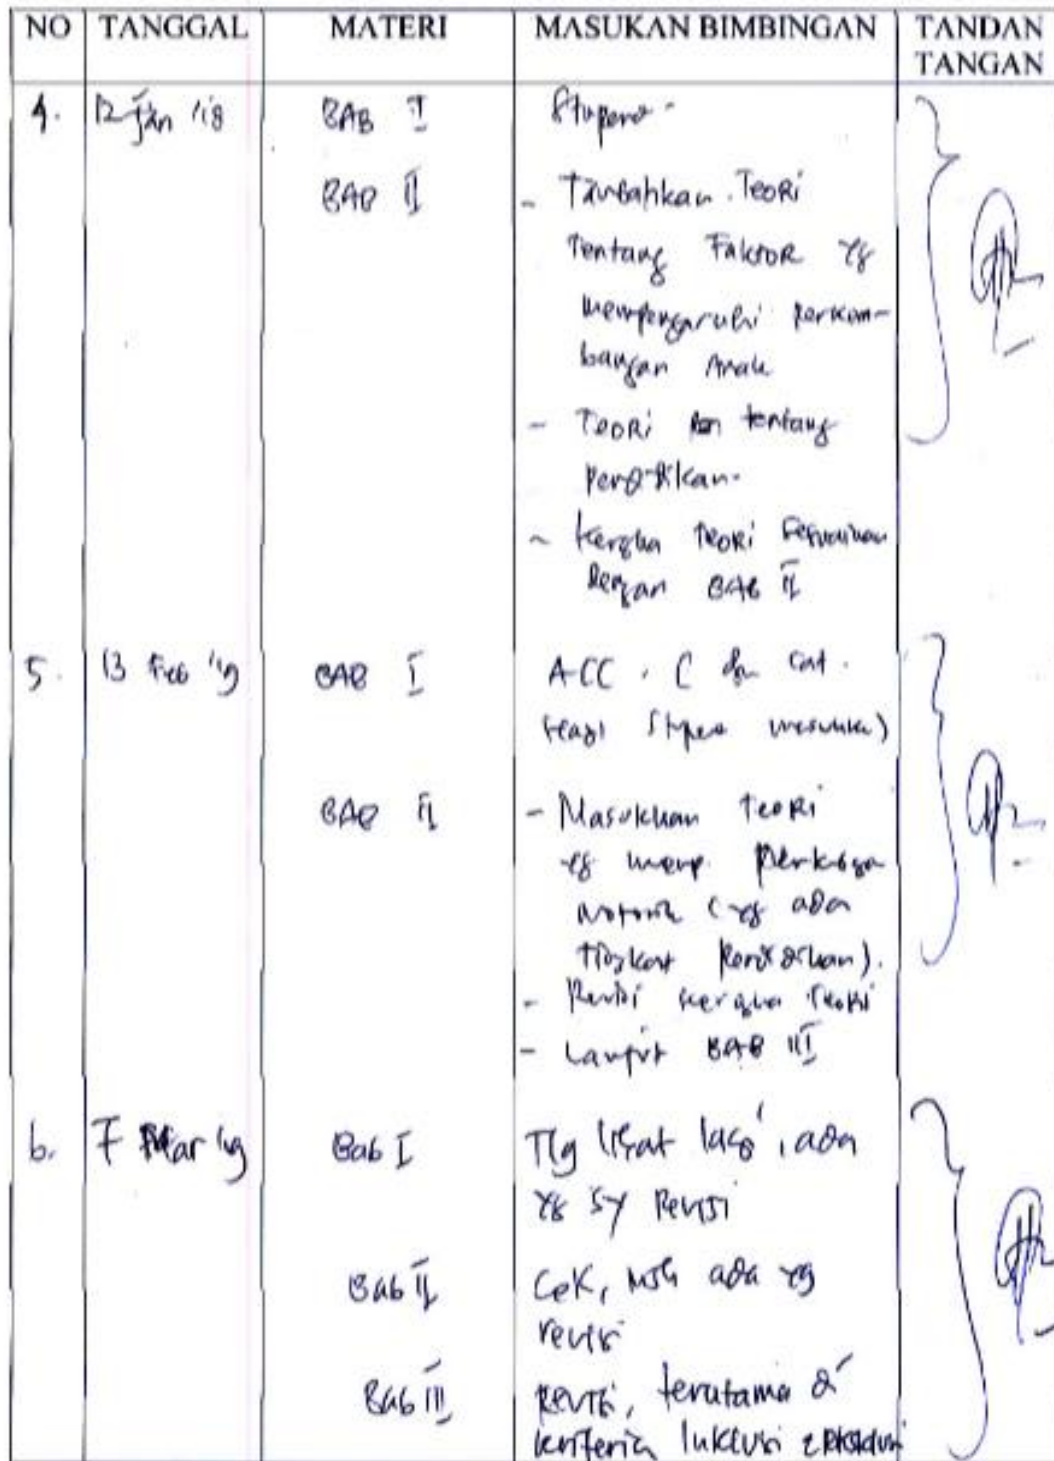 NO TANGGAL MATERI MASUKAN BIMBINGAN TANDAN TANGAN
4. 12 Jan '18 BAB I
BAB II - Tambahkan Teori
Tentang Faktor yg
mempengaruhi perkem-
bangan Anak
- Teori tentang
pendidikan.
- Kerangka Teori sesuaikan
dengan BAB II
5. 13 Feb '19 BAB I ACC
BAB II - Masukkan Teori
yg memp.
motorik (yg ada
tingkat pendidikan).
- Revisi kerangka Teori
- Lanjut BAB III
6. 7 Mar '19 Bab I Tlg lihat lagi, ada
yg sy Revisi
Bab II Cek, msh ada yg
revisi
Bab III Revisi, terutama di
kriteria Inklusi & Eksklusi